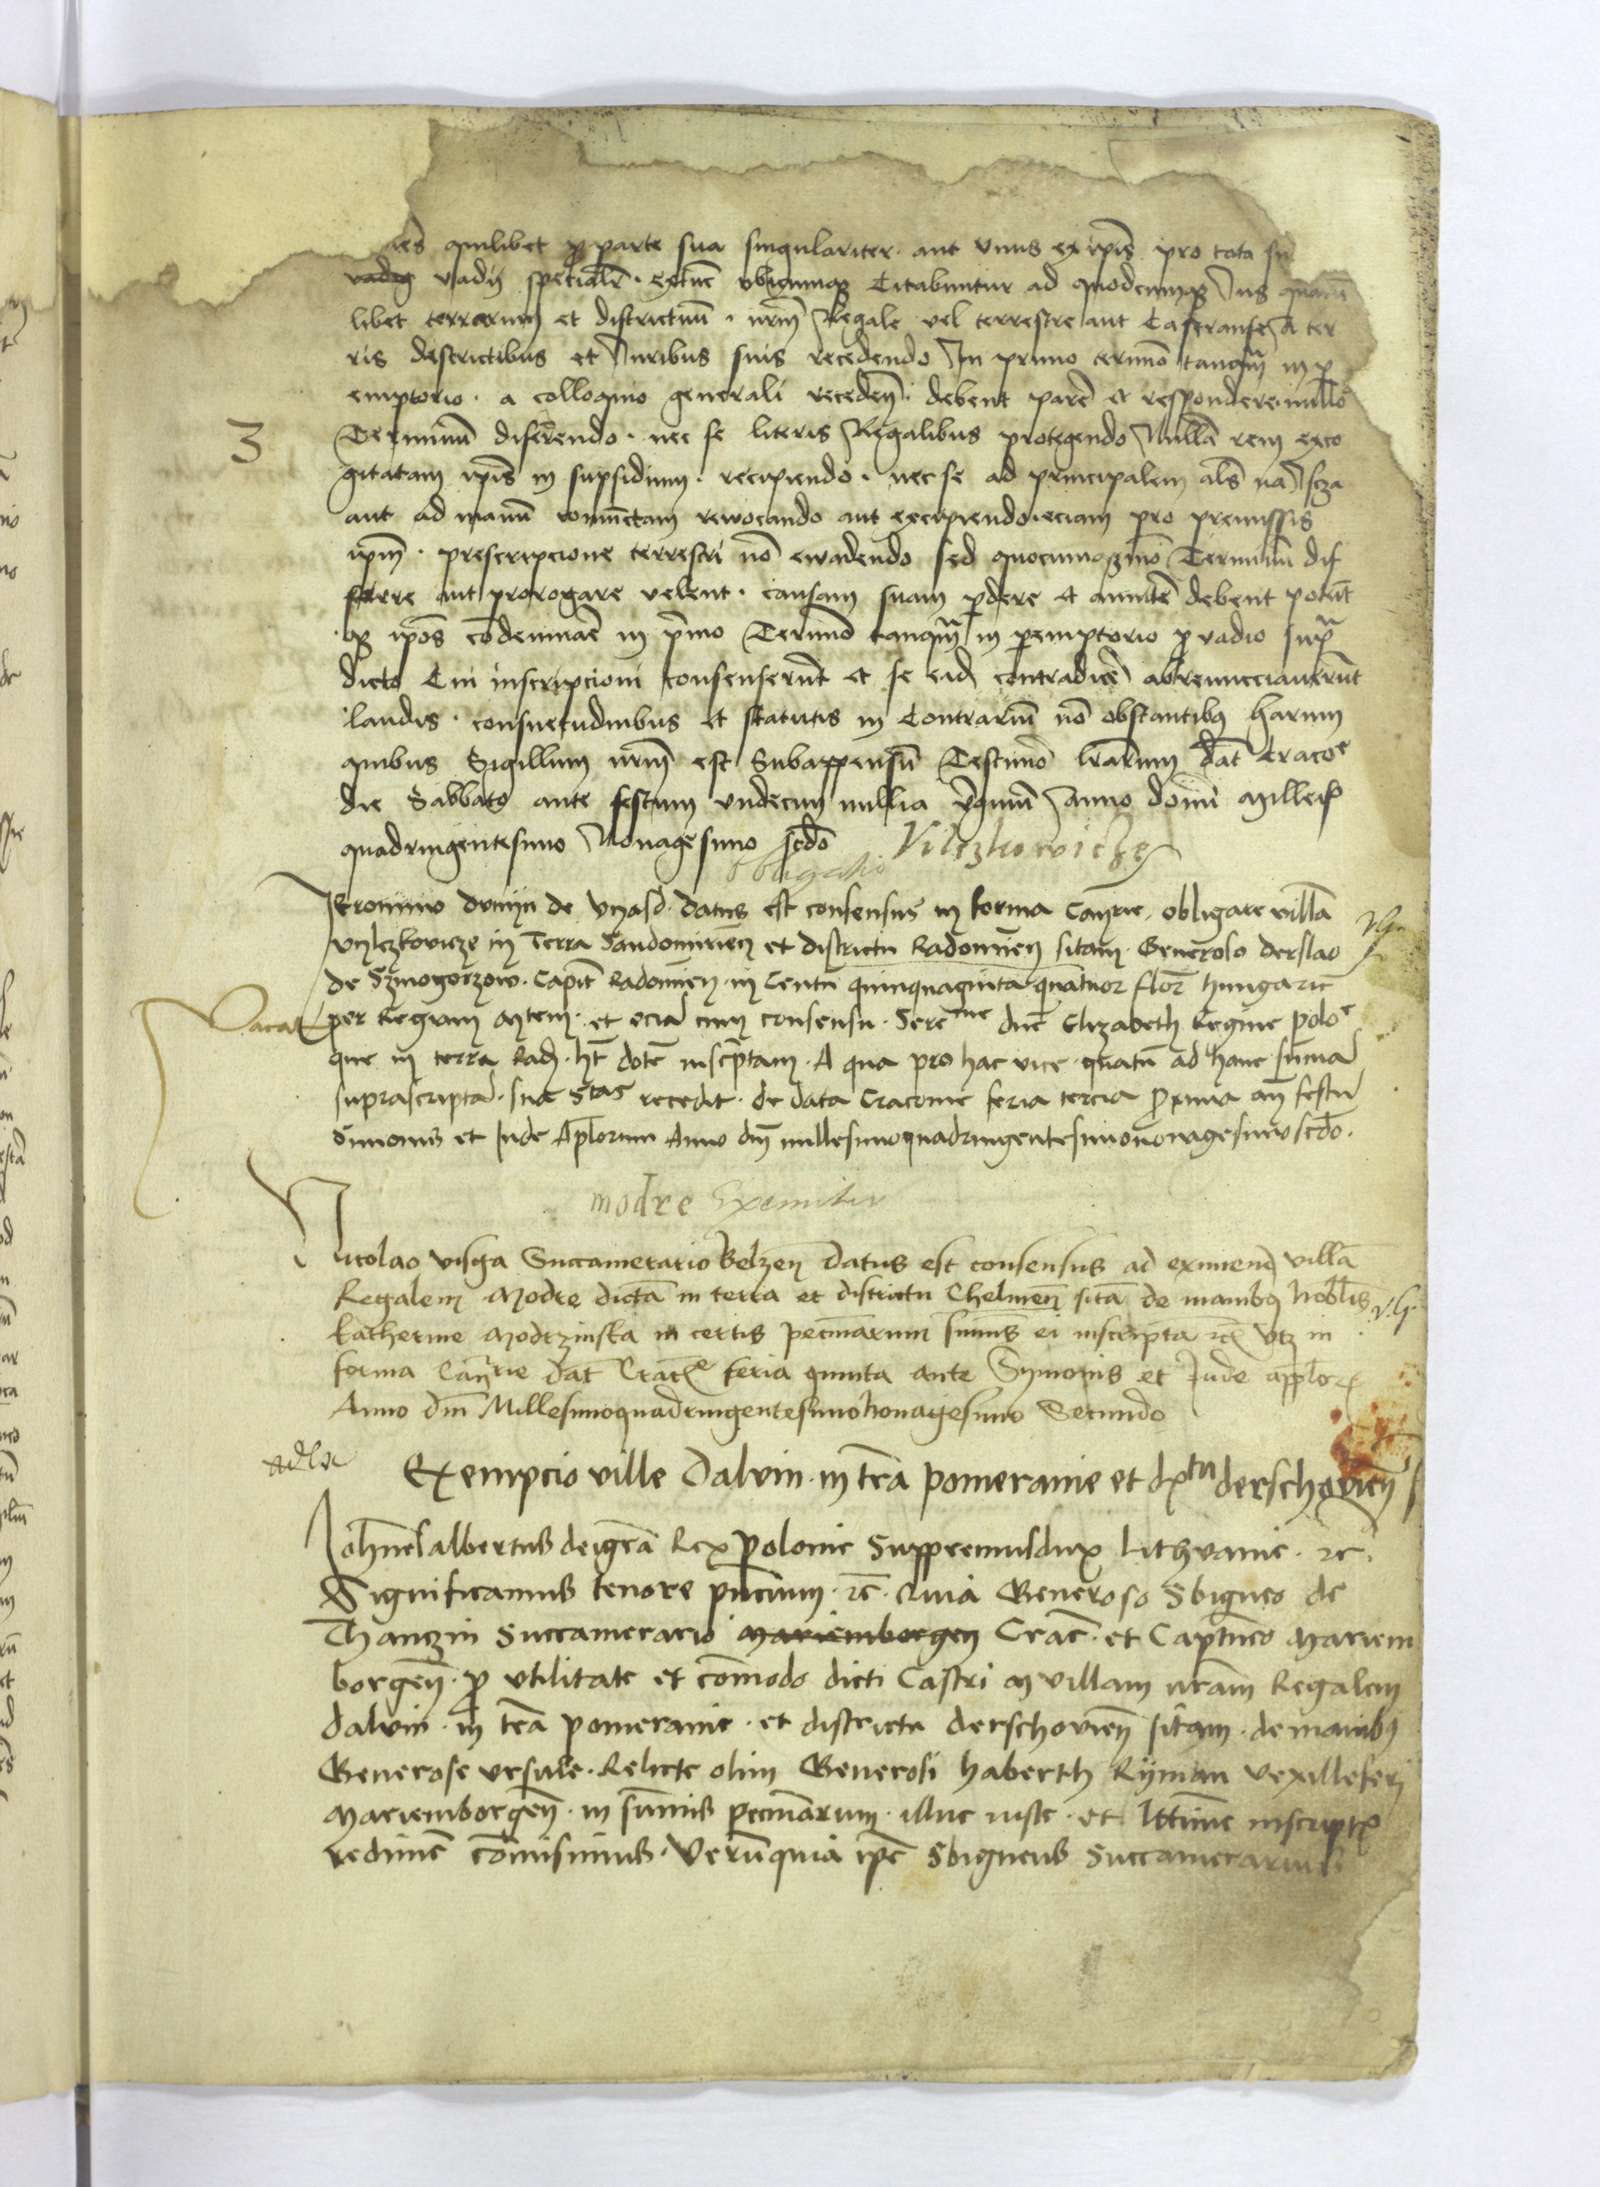 quilibet pro parte sua singulariter aut vnus ex ipīs pro tota su
vadiū vadij specialr̄ extūc vbicumqȝ Citabuntur ad quodcumqȝ Jus quam
libet terrarum et districtuū nr̄m Regale vel terrestre aut Castranse a ter
ris destrictibus et Juribus suis recedendo In primo termīo tanqm̄ in p
emptorio a colloquio generali receden̄ debent parē et respondere nullo
3
Terminū diferendo nec se literis Regalibus protegendo Nullā rem exco
gitatam ip̄is in supsidium recipiendo nec se ad principalem als̄ na Iscza
aut ad manū coniūctam rewocando aut excipiendo eciam pro premissis
ip̄m prescripcione terrestri nō ewadendo sed quocumqȝ mō Terminū dif
ferre aut prorogare velent causam suam p̄dere et amittē debent potūt
qȝ ipōs cōdemnaē in p̄mo Termīo tanqm̄ in p̄emptorio p̄ vadio sup̄
dicto Cui inscripcioni consenserūt et se eid contradicē abrenuncciauerūt
laudis consuetudinibus et statutis in Contrariū nō obstantibȝ harum
quibus Sigillum nr̄m est Subappensū Testimō lr̄arum Dat̄ Cracoe
die Sabbato ante festum vndecim millia v̄ginū Anno domī Milleiſ
quadringentesimo Nonagesimo scdō
Vilczkowicze
obligatio
Ieronimo dvnijn de Vyasd datus est consensus in forma Can̄rie obligare villā
vylczkovicze in Terra Sandomirien̄ et districtu Radomien̄ sitam Generoso derslao
V.G.
de Szmogorzow Capit̄ Radomien̄ in Centū quinquaginta quatuor flor̄ hungaric̄
Vacat
per Regiam Mtem et eciā cum consensu Sereme dn̄e Elizabeth Regine poloe
que in terra Rad ht̄ dotē inscp̄tam A qua pro hac vice quatū ad hanc sūmā
suprascriptā sua Stas recedit de data Cracouie feria tercia p̄xima an̄ festū
Simonis et Jude Ap̄lorum Anno dnī millesimoquadringentesimononagesimo scdō
modre Exemitur
Nicolao visga Succamerario Belzen̄ datus est consensus ad eximend villā
Regalem Modre dictā in terra et districtu Chelmen̄ sitā de manibȝ nob̄lis
v.G.
katherine Modrzinska in certis pecuniarum sum̄is ei inscripta rc̄ vtȝ in
forma Can̄rie dat Crace feria quinta ante Symonis et Jude applor
Anno dn̄i Millesimoquadringentesimo Nonagesimo Secundo
Exempcio ville Dalvin in tr̄a pomeranie et dxtu derschovien̄
Ioh̄nes albertus dei gr̄a Rex Polonie Suppremus dux Lithvanie rc̄
Significamus tenore pn̄cium rc̄ Quia Generoso Sbigneo de
Thanczin Succamerario Mariemborgen Crac̄ et Capt̄neo Mariem
borgen̄ p̄ vtilitate et cōmodo dicti Castri in villam nr̄am Regalem
dalvin in tr̄a pomeranie et districtu derschovien̄ sitam de manibȝ
Generose vrsule Relicte olim Generosi haberth Ryman vexilleferi
Mariemborgen̄ in sum̄is pecūiarum illuc iuste et lttīme inscriptꝭ
redimē cōmisimus Verūquia ip̄e Sbigneus Succamerarius